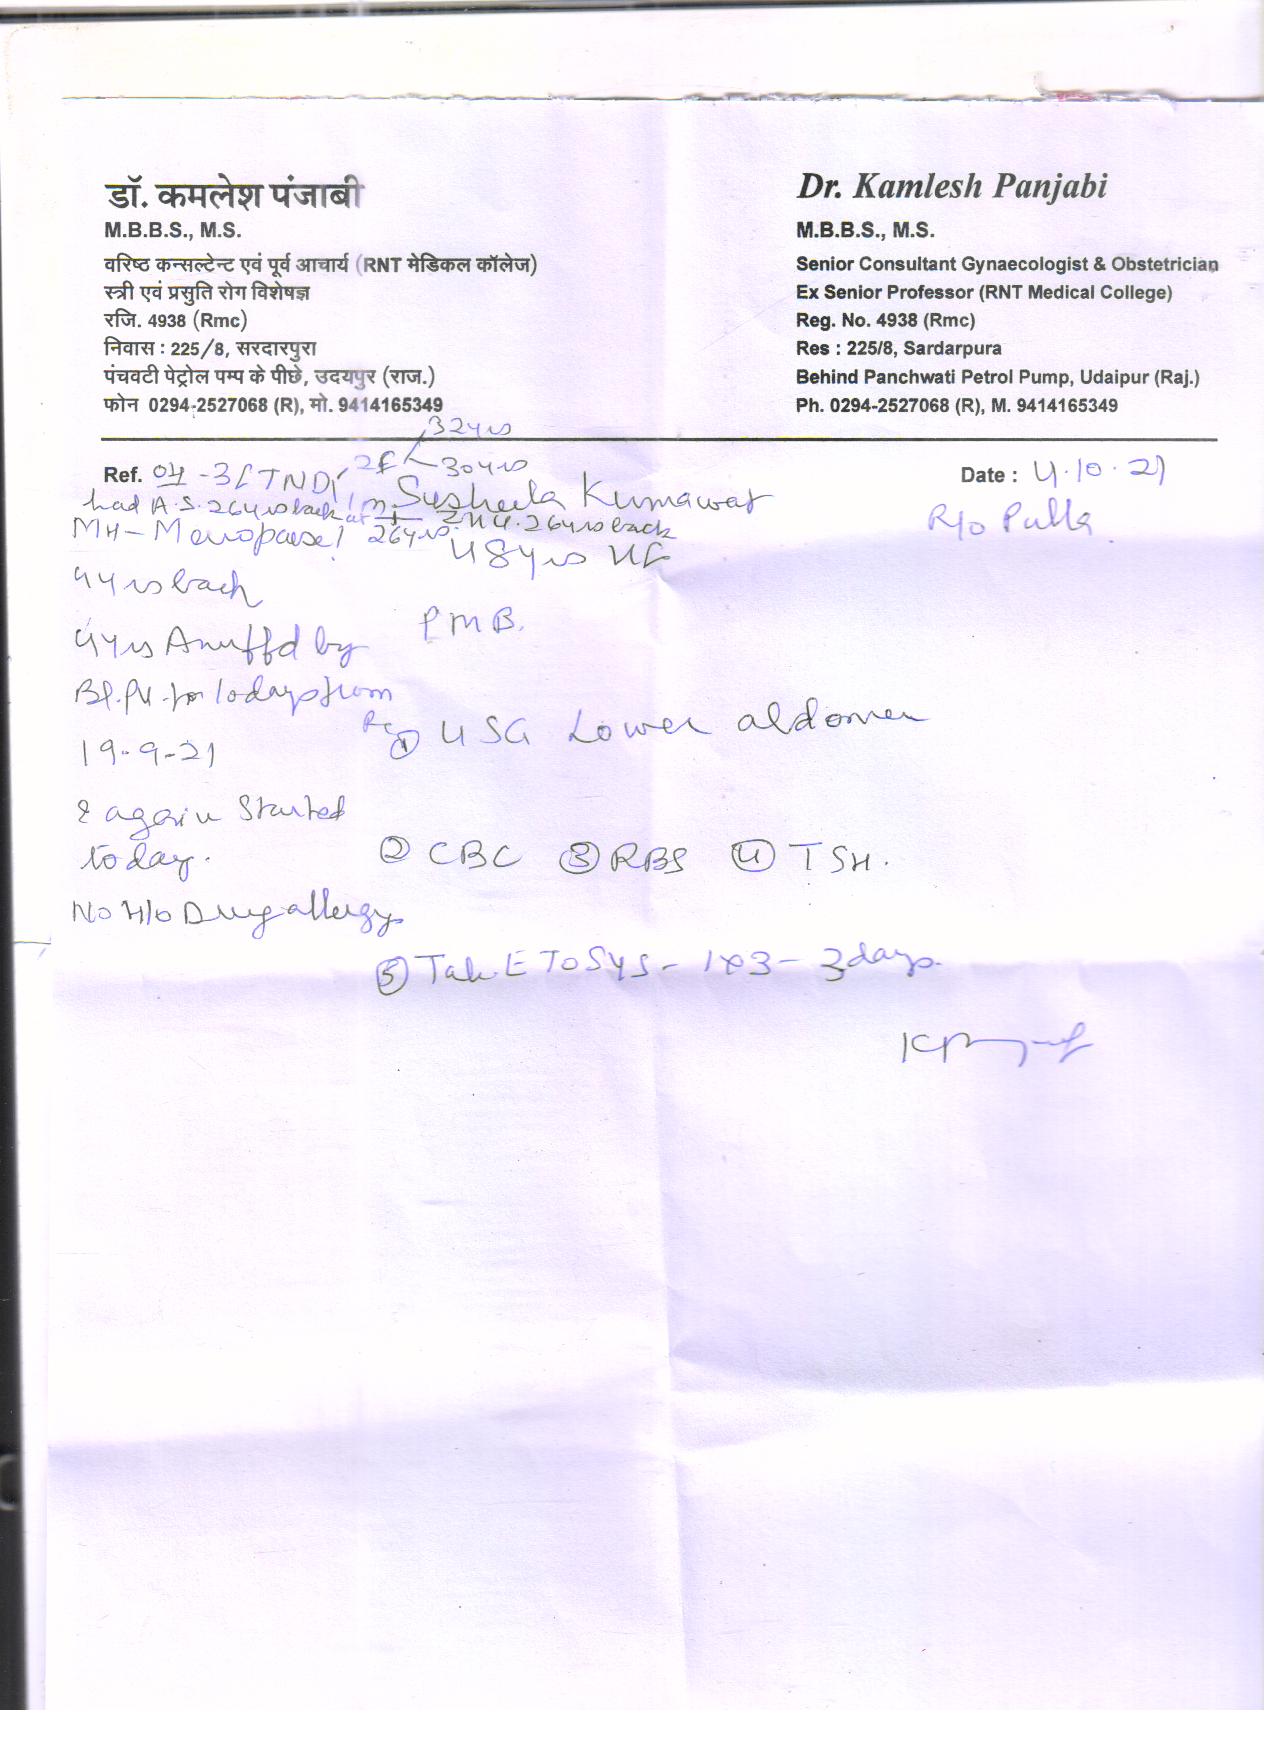 डॉ. कमलेश पंजाबी
M.B.B.S., M.S.
वरिष्ठ कन्सल्टेन्ट एवं पूर्व आचार्य (RNT मेडिकल कॉलेज)
स्त्री एवं प्रसुति रोग विशेषज्ञ
रजि. 4938 (Rmc)
निवास : 225/8, सरदारपुरा
पंचवटी पेट्रोल पम्प के पीछे, उदयपुर (राज.)
फोन 0294-2527068 (R), मो. 9414165349
Dr. Kamlesh Panjabi
M.B.B.S., M.S.
Senior Consultant Gynaecologist & Obstetrician
Ex Senior Professor (RNT Medical College)
Reg. No. 4938 (Rmc)
Res : 225/8, Sardarpura
Behind Panchwati Petrol Pump, Udaipur (Raj.)
Ph. 0294-2527068 (R), M. 9414165349
32yrs
Ref. OH - 3LTND, 2F 30yrs
Date : 4.10.21
had A.S. 26yrs back at 26yrs
Susheela Kumawat
R/o Pulla
MH - Menopause
26yrs back
48yrs
4yrs back
PMB.
4yrs by
Bl.PV. for 10days from
19-9-21
① USG Lower abdomen
& again Started
today.
② CBC ③ RBS ④ TSH.
No H/o Drug allergy
⑤ Tab. ETOSYS - 1x3 - 3days.